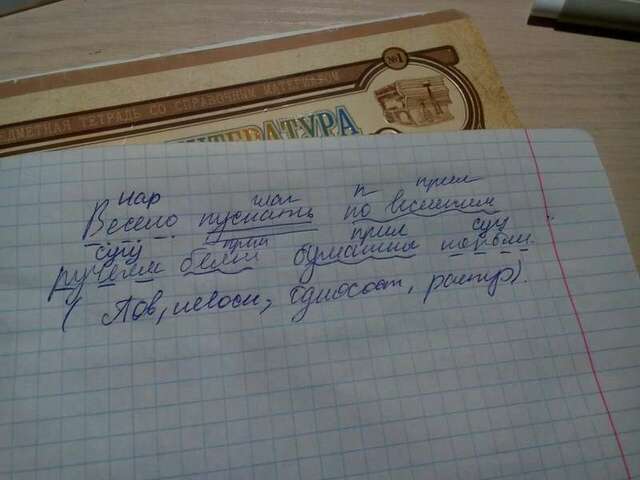 ПРЕДМЕТНАЯ ТЕТРАДЬ СО СПРАВОЧНЫМ МАТЕРИАЛОМ
№1
ЛИТЕРАТУРА
нар глаг п прил
Весело пускать по весенним
сущ прил прил сущ
ручьям белый бумажный кораблик.
(Пов, невоск, односост, распр).